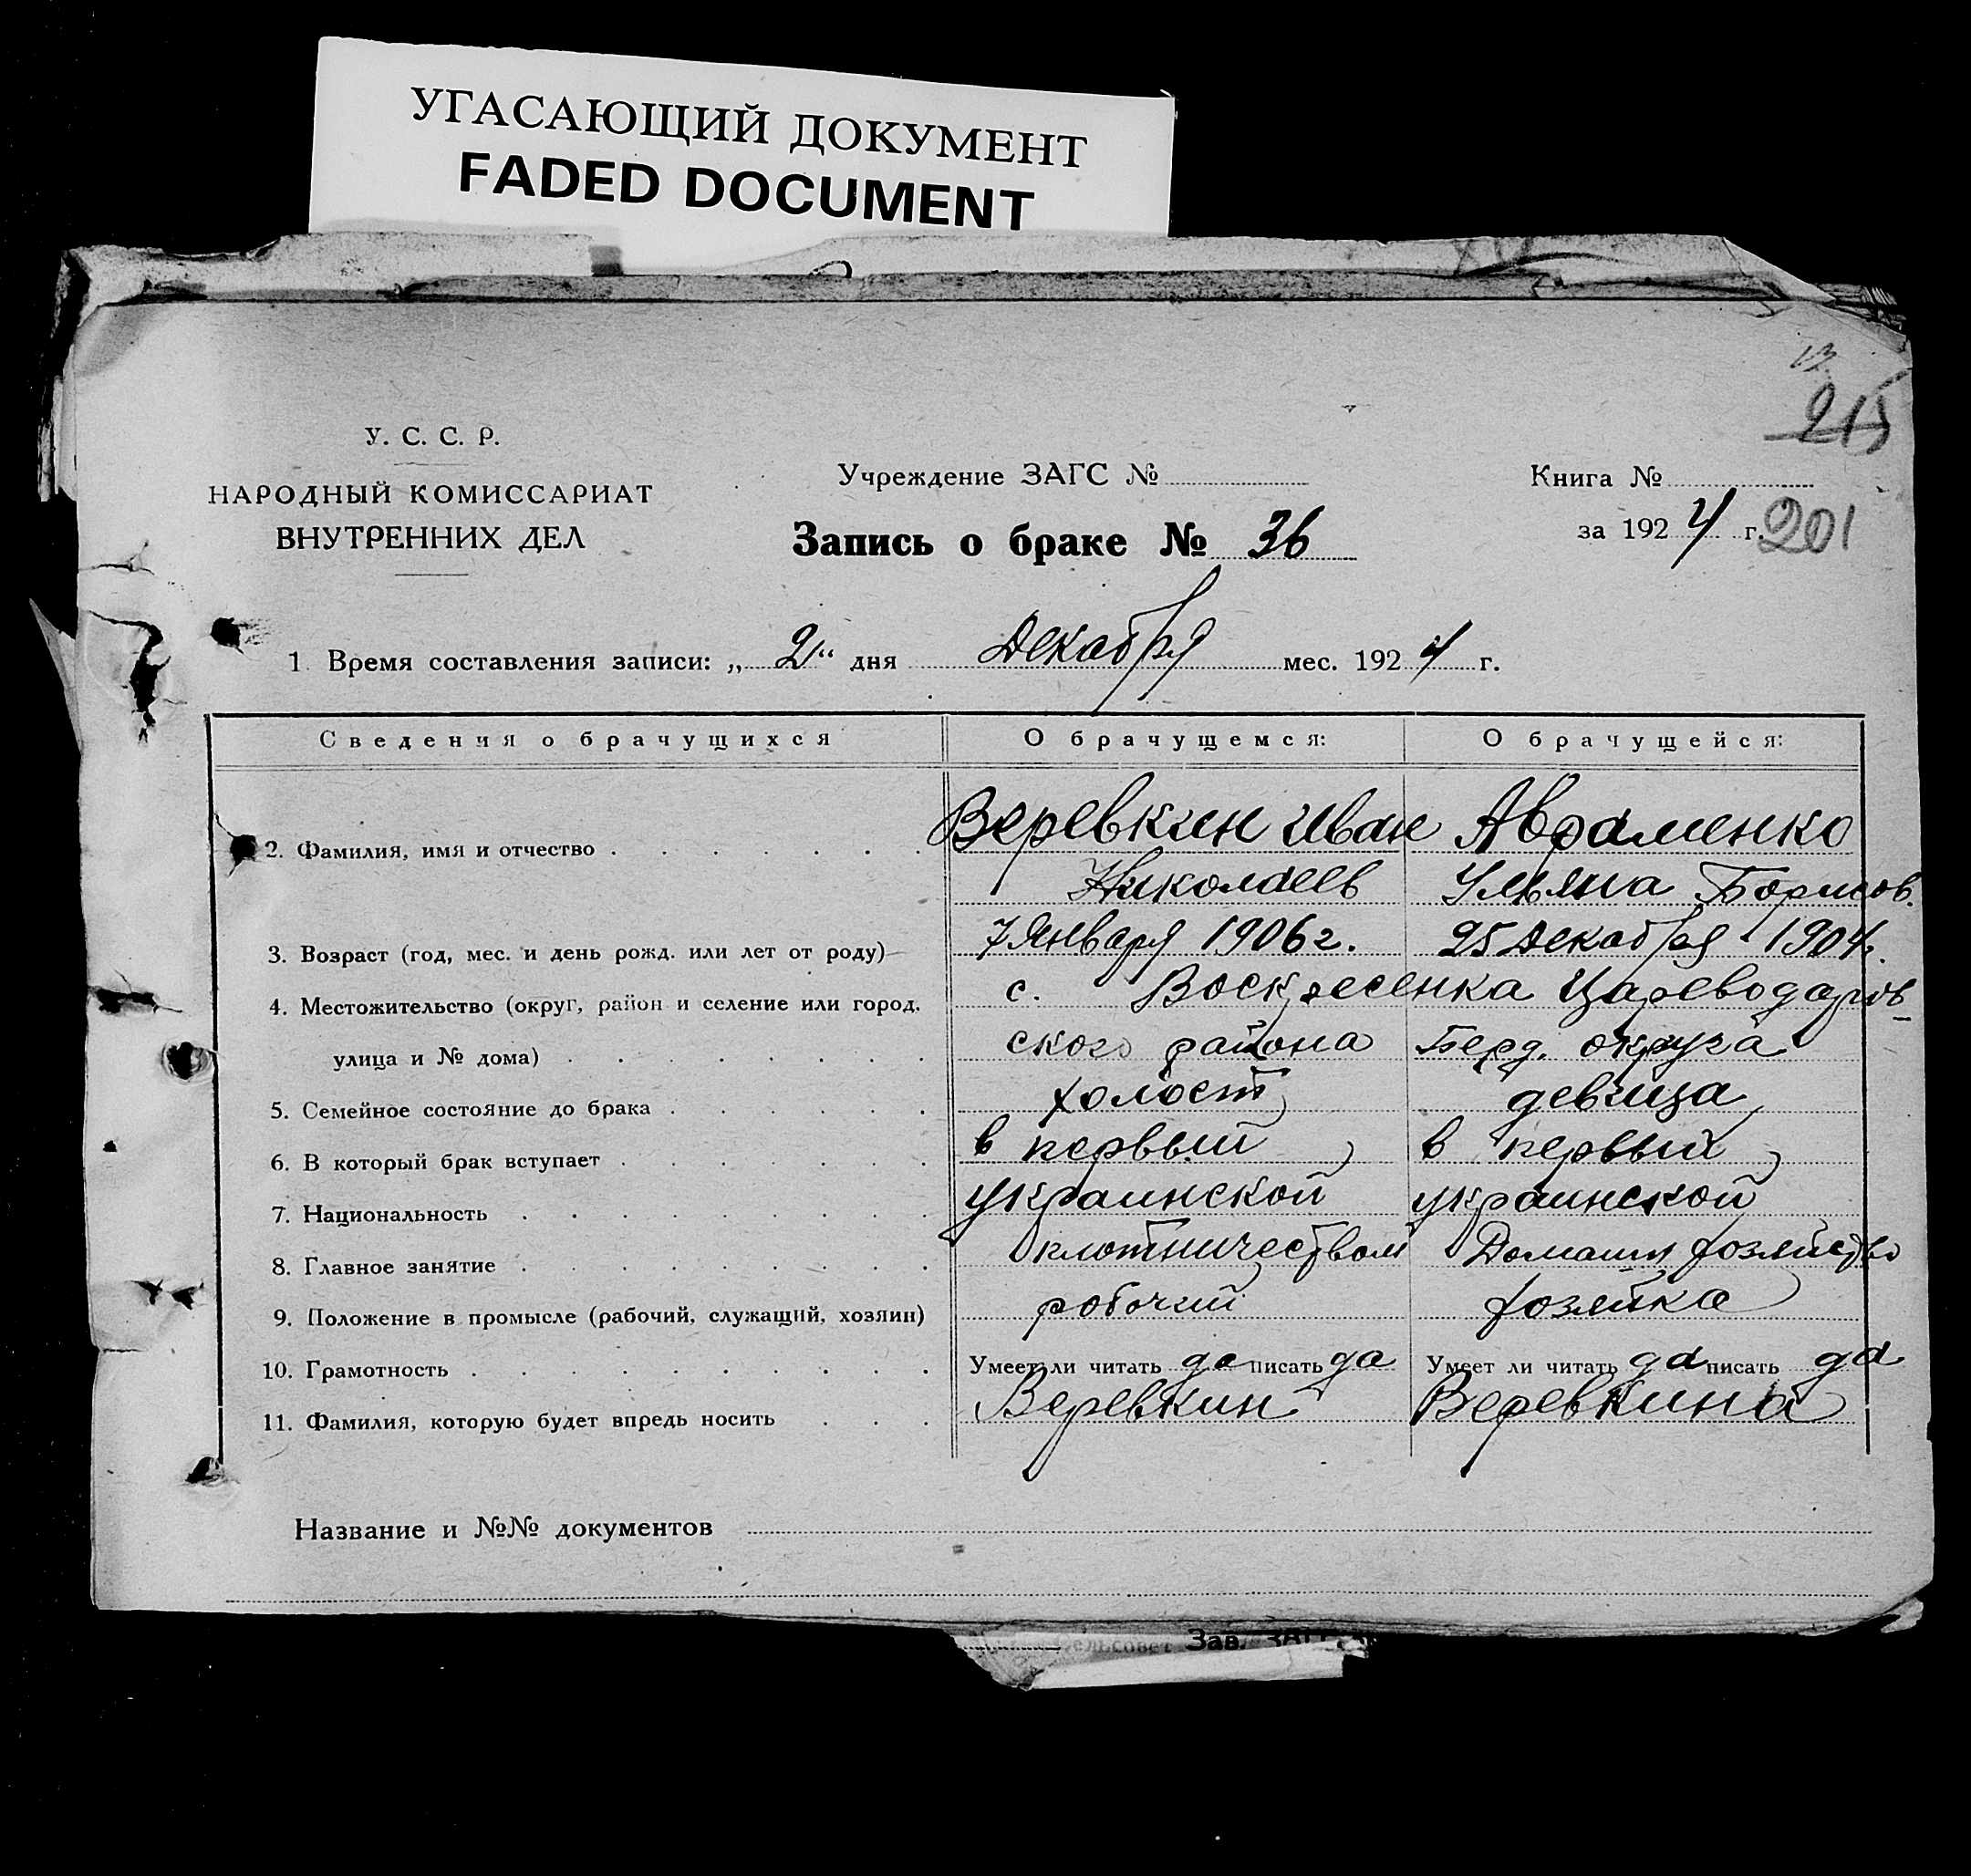 УГАСАЮЩИЙ ДОКУМЕНТ
FADED DOCUMENT
215
У. С. С. Р.
НАРОДНЫЙ КОМИССАРИАТ
ВНУТРЕННИХ ДЕЛ
Учреждение ЗАГС №
Книга №
за 1924 г. 201
Запись о браке № 36
1. Время составления записи: „2“ дня Декабря мес. 1924 г.
Сведения о брачущихся О брачущемся: О брачущейся:
2. Фамилия, имя и отчество Веревкин Иван Авраменко
Николаев Ульяна Борисов.
3. Возраст (год, мес. и день рожд. или лет от роду) 7 Января 1906 г. 25 Декабря 1904 г.
4. Местожительство (округ, район и селение или город, с. Воскресенка Цареводаров-
улица и № дома) ского района Берд. округа
5. Семейное состояние до брака холост девица
6. В который брак вступает в первый в первый
7. Национальность украинской украинской
8. Главное занятие плотничеством Домашн хозяйство
9. Положение в промысле (рабочий, служащий, хозяин) робочий хозяйка
10. Грамотность Умеет ли читать да писать да Умеет ли читать да писать да
11. Фамилия, которую будет впредь носить Веревкин Веревкина
Название и №№ документов
сельсовет Зав.